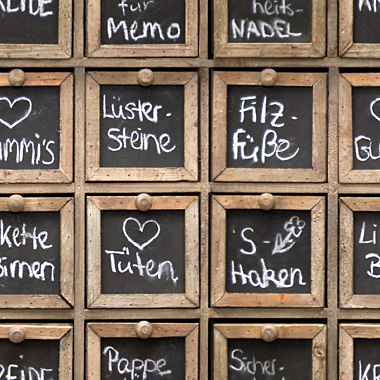 EIDE
für
Memo
heits-
NADEL
ummi's
Lüster-
steine
Filz-
füße
Gu
kette
Birnen
Tüten
S-
Haken
Li
B
EIDE
Pappe
Sicher-